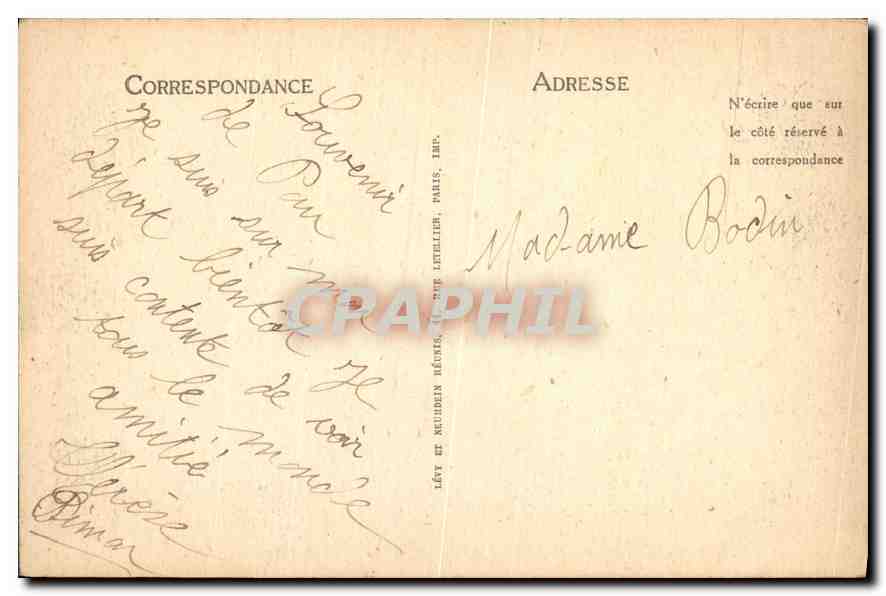 CORRESPONDANCE
Souvenir
de Pau
je suis sur mon
départ bientôt je
suis contente de voir
tous le monde
amitié
Thérèse
LÉVY ET NEURDEIN RÉUNIS, 44, RUE LETELLIER, PARIS, IMP.
ADRESSE
N'écrire que sur
le côté réservé à
la correspondance
Madame Bodin
CPAPHIL